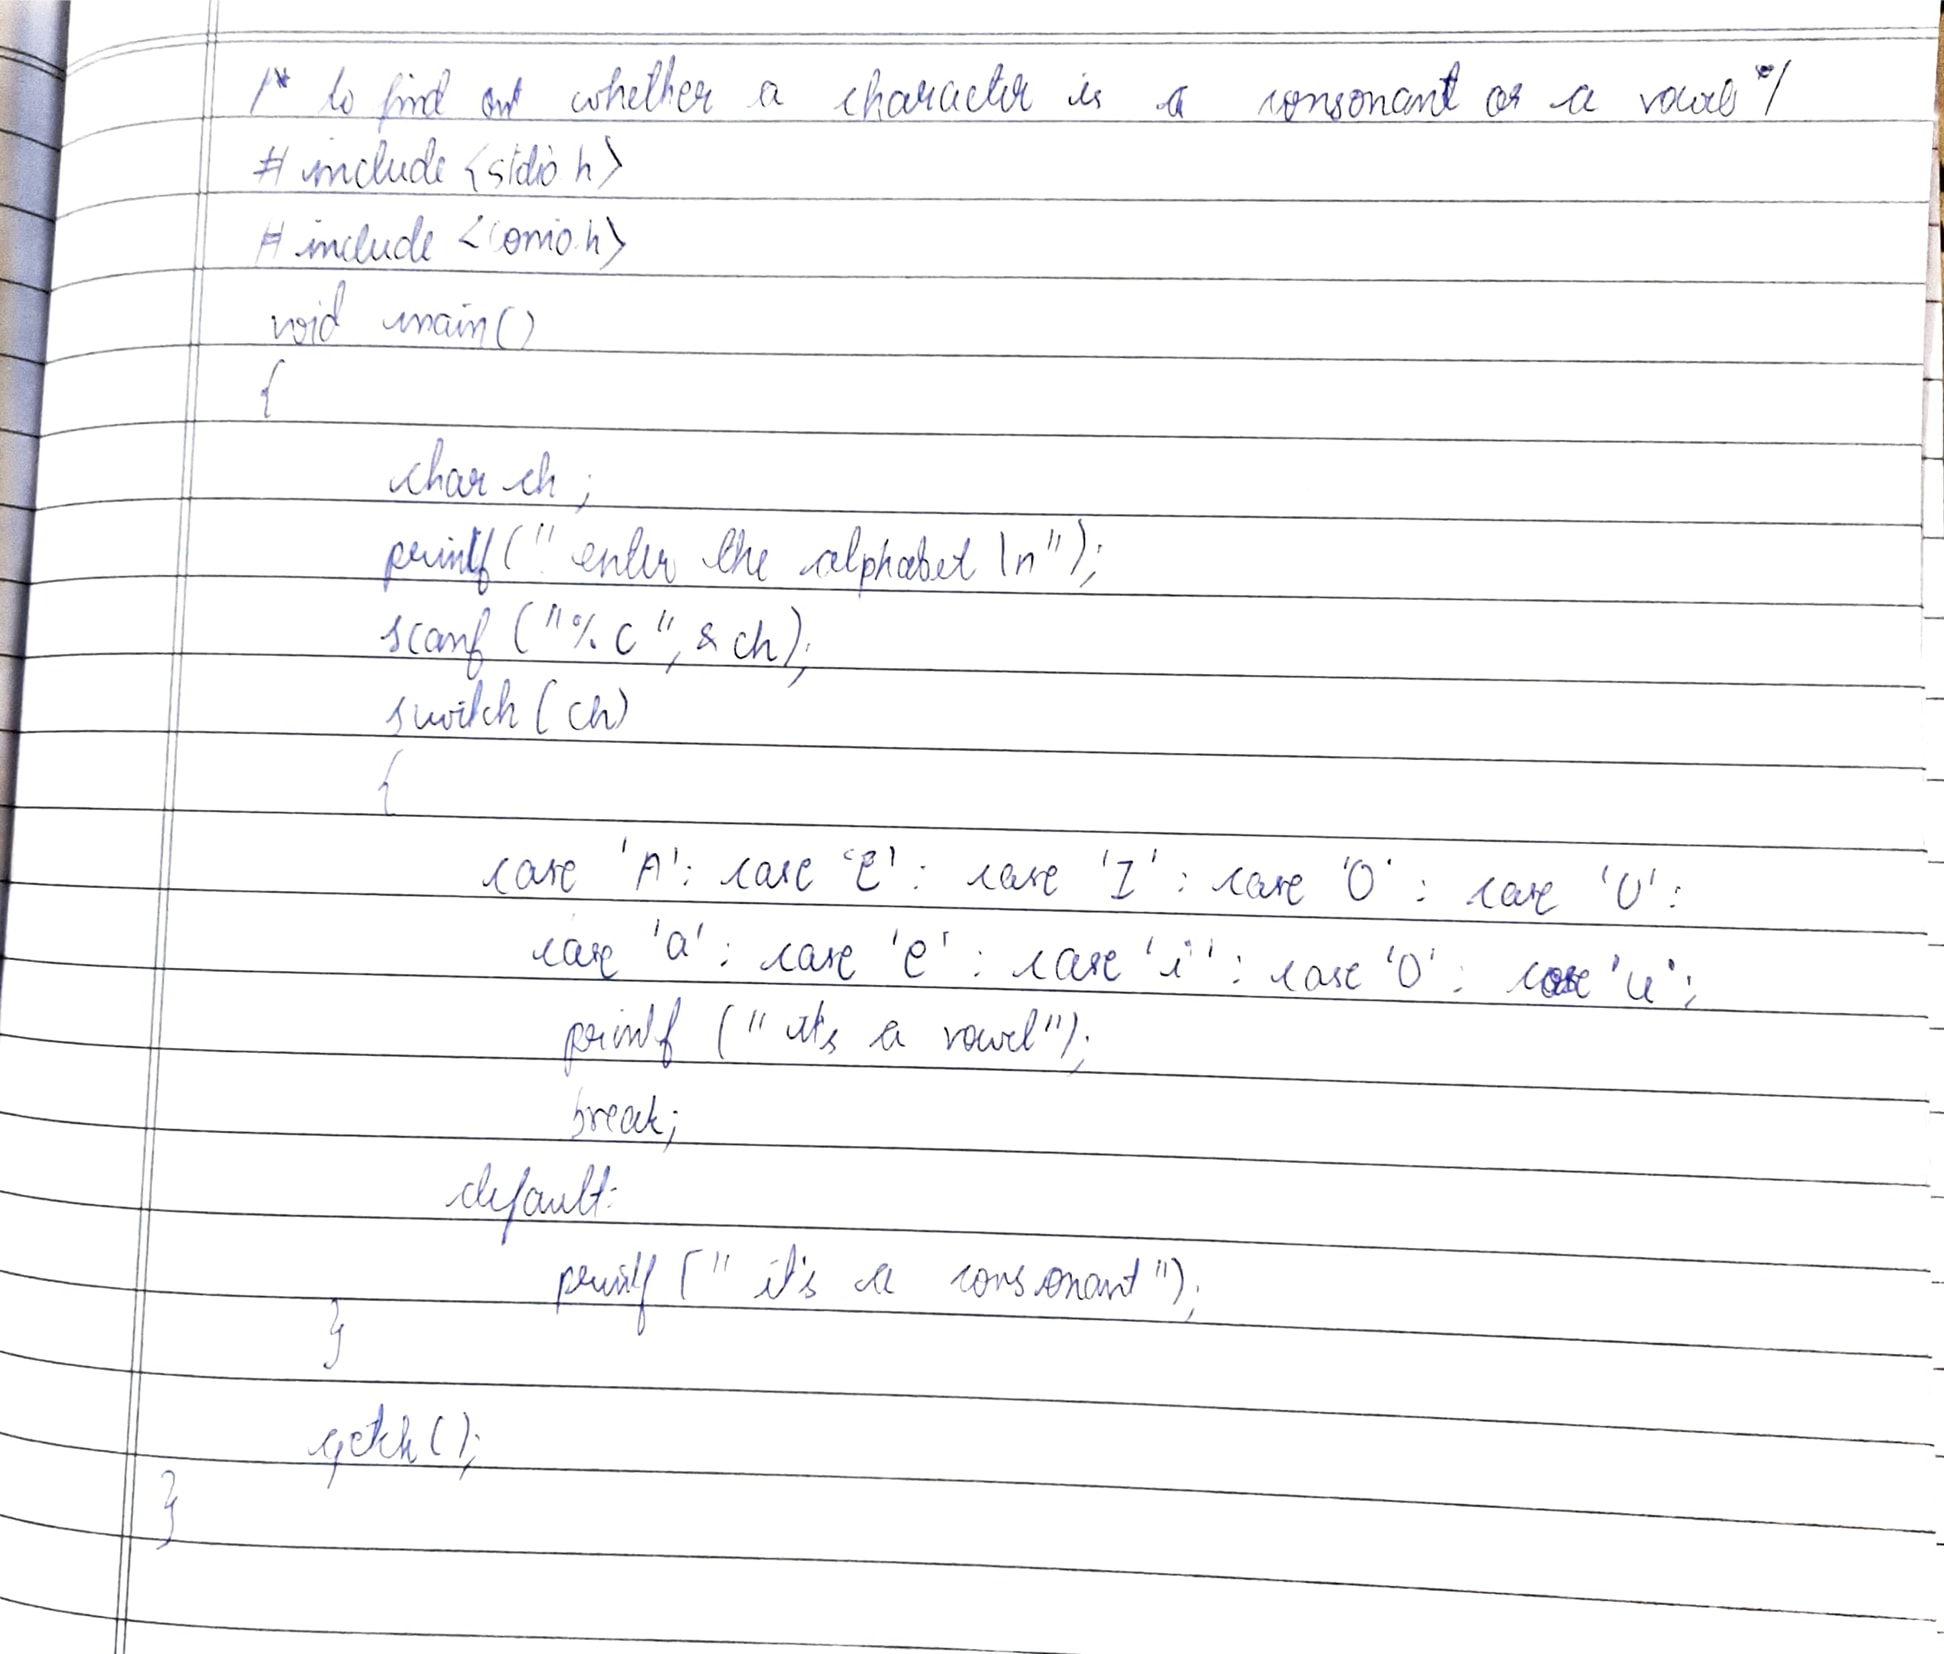 /* to find out whether a character is a consonant or a vowel */
# include <stdio.h>
# include <conio.h>
void main()
{
char ch;
printf(" enter the alphabet \n");
scanf ("%c", &ch);
switch (ch)
{
case 'A': case 'E': case 'I': case 'O': case 'U':
case 'a': case 'e': case 'i': case 'o': case 'u':
printf (" it's a vowel");
break;
default:
printf (" it's a consonant");
}
getch();
}